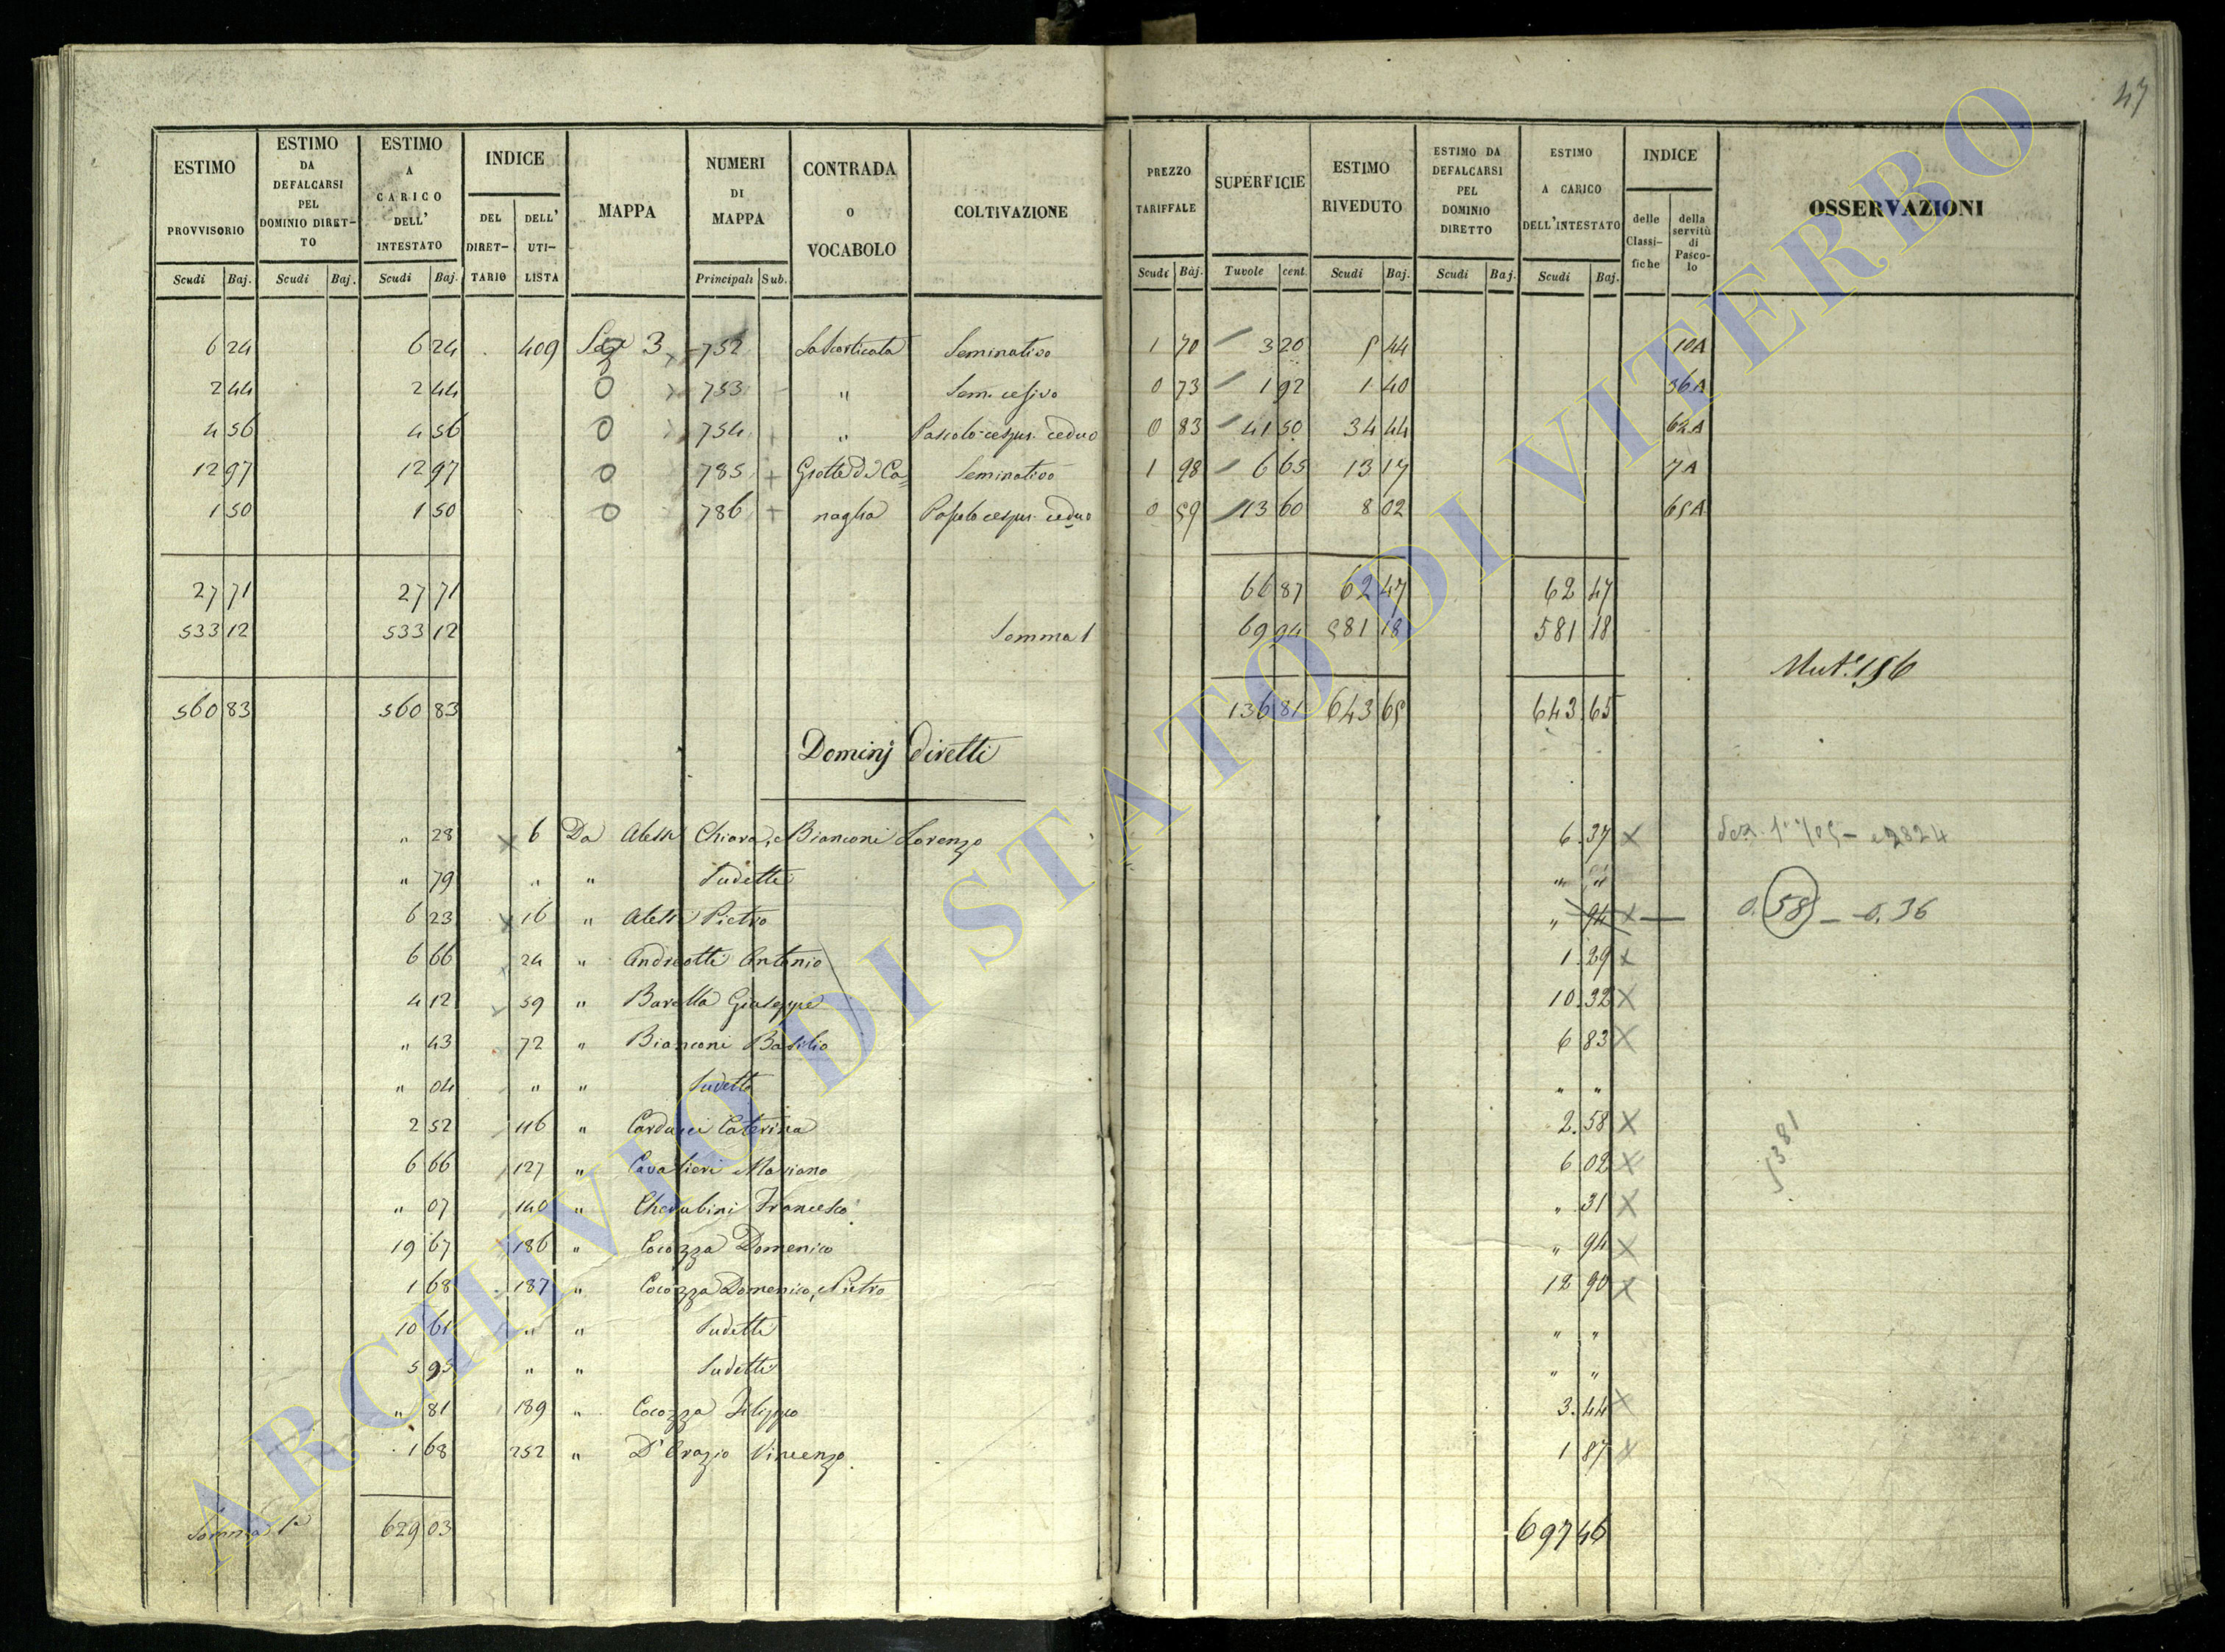 47
ESTIMO PROVVISORIO | ESTIMO DA DEFALCARSI PEL DOMINIO DIRET-TO | ESTIMO A CARICO DELL' INTESTATO | INDICE | MAPPA | NUMERI DI MAPPA | CONTRADA O VOCABOLO | COLTIVAZIONE | PREZZO TARIFFALE | SUPERFICIE | ESTIMO RIVEDUTO | ESTIMO DA DEFALCARSI PEL DOMINIO DIRETTO | ESTIMO A CARICO DELL'INTESTATO | INDICE | OSSERVAZIONI
DEL DIRET-TARIO | DELL' UTI-LISTA | delle Classi-fiche | della servitù di Pasco-lo
Scudi | Baj. | Scudi | Baj. | Scudi | Baj. | Principali | Sub. | Scudi | Baj. | Tavole | cent. | Scudi | Baj. | Scudi | Baj. | Scudi | Baj.
6 24 | 6 24 | 409 | Sez 3 | 752 | La Scorticata | Seminativo | 1 70 | 3 20 | 5 44 | 10A
2 44 | 2 44 | 0 | 753 | " | Sem. cesivo | 0 73 | 1 92 | 1 40 | 36A
4 56 | 4 56 | 0 | 754 | " | Pascolo cespug. ceduo | 0 83 | 41 50 | 34 44 | 62A
12 97 | 12 97 | 0 | 785 + | Grotte di Ca= | Seminativo | 1 98 | 6 65 | 13 17 | 7A
1 50 | 1 50 | 0 | 786 + | naglia | Pascolo cespug. ceduo | 0 59 | 13 60 | 8 02 | 65A
27 71 | 27 71 | 66 87 | 62 47 | 62 47
533 12 | 533 12 | Somma 1 | 69 94 | 581 18 | 581 18
Mut.e 196
560 83 | 560 83 | 136 81 | 643 65 | 643 65
Dominj diretti
" 28 | x 6 | Da Alessi Chiara, e Bianconi Lorenzo | 6.37 x | e 2824
" 79 | " | " Sudetti | " "
6 23 | x 16 | " Alessi Pietro | " 94 x — | 0.58 — 0.36
6 66 | 24 | " Andreotti Antonio | 1.29 x
4 12 | 59 | " Barella Giuseppe | 10.32 x
" 43 | 72 | " Bianconi Basilio | 6 83 x
" 04 | " | " Sudetto | " "
2 52 | 116 | " Carducci Caterina | 2.58 x
6 66 | 127 | " Cavalieri Mariano | 6 02 x | 5381
" 07 | 140 | " Cherubini Francesco | " 31 x
19 67 | 186 | " Cocozza Domenico | " 94 x
1 68 | 187 | " Cocozza Domenico, e Pietro | 12 90 x
10 61 | " | " Sudetti | " "
5 93 | " | " Sudetti | " "
" 81 | 189 | " Cocozza Filippo | 3.44 x
1 68 | 252 | " D'Orazio Vincenzo | 1 87 x
Somma 1a | 629 03 | 697 46
ARCHIVIO DI STATO DI VITERBO